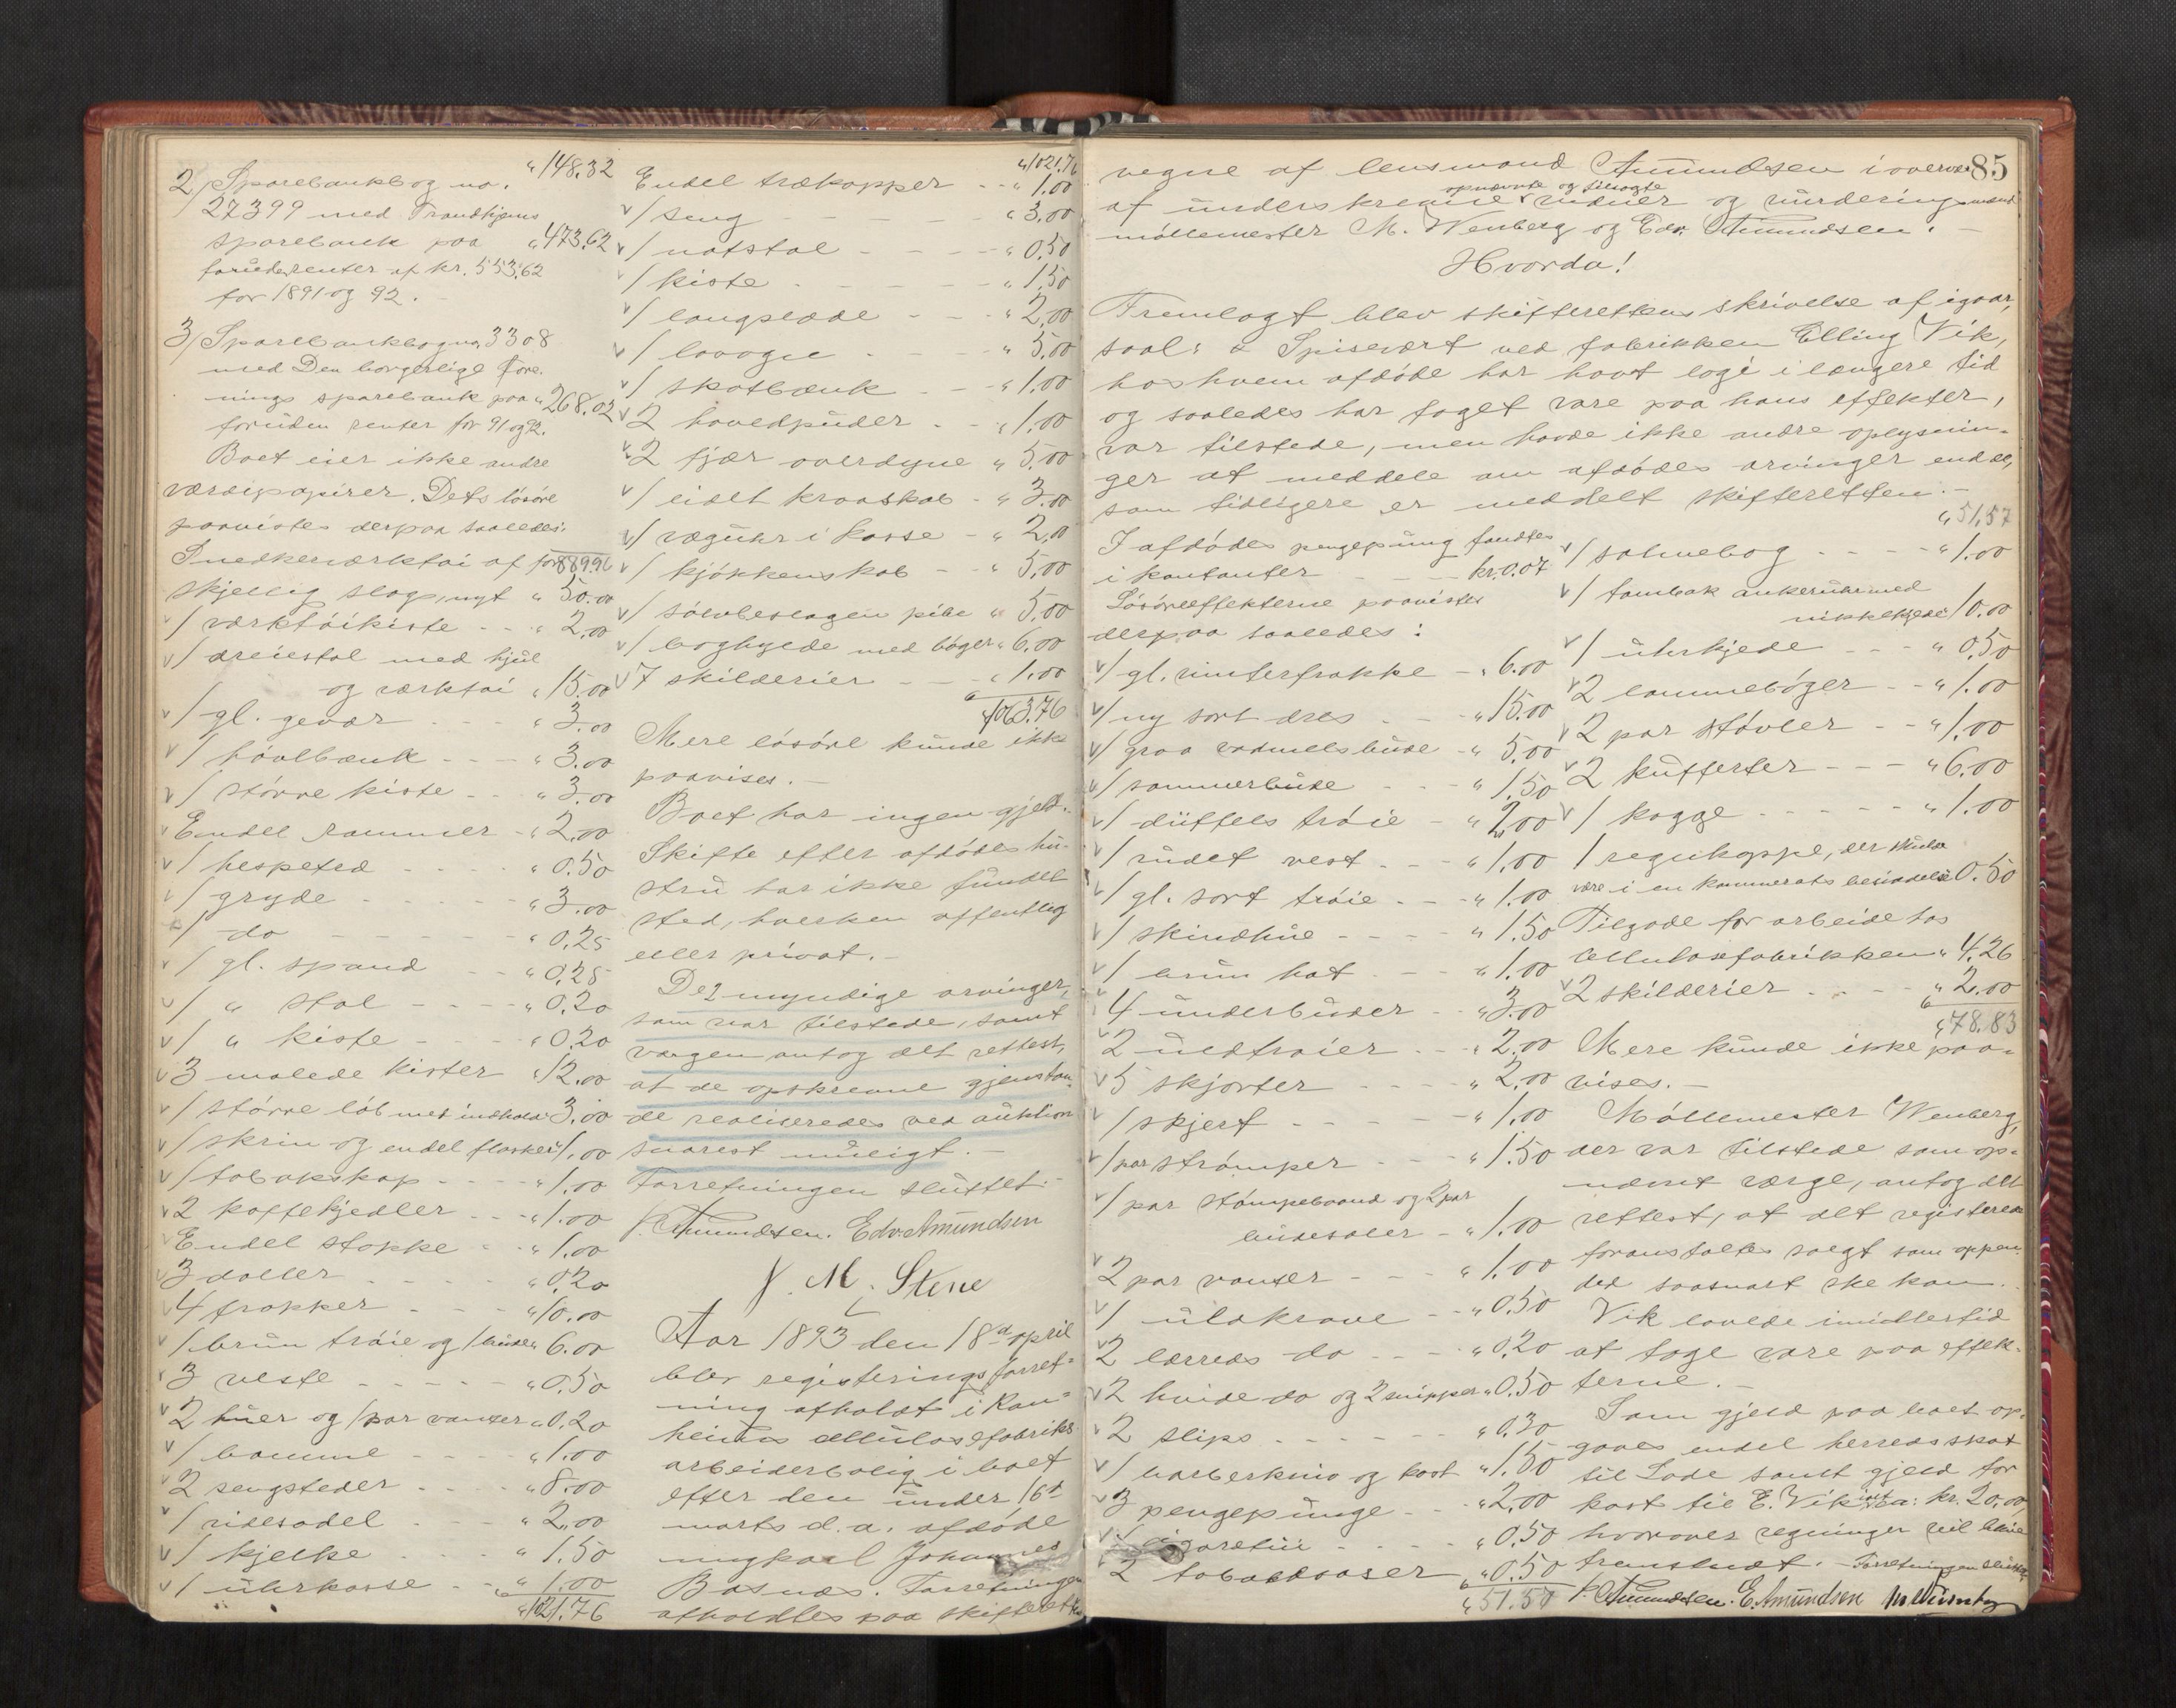 " 148.32
2/ Sparebankbog no.
27399 med Trondhjems
sparebank paa " 473.62
foruden renter af kr. 553.62
for 1891 og 92. -
3/ Sparebankbog no. 3308
med Den borgerlige Fore-
nings sparebank paa " 268.02
foruden renter for 91 og 92.
Boet eier ikke andre
værdipapirer. Dets løsøre
paavistes derpaa saaledes:
889.96
Snedkerværktøi af for-
skjellig slags, nyt " 50.00
1 værktøikiste - - " 2.00
1 dreiestol med hjul
og værktøi " 15.00
1 gl. gevær - - " 3.00
1 høvlbænk - - - " 3.00
1 større kiste - - " 3.00
Endel rammer - " 2.00
1 hespetræ - - - - " 0.50
1 gryde - - - - " 3.00
1 do - - - - - " 0.25
1 gl. spand - - " 0.25
1 " stol - - - - " 0.20
1 " kiste - - - " 0.20
3 malede kister " 12.00
1 større løb met indhold " 3.00
1 skrin og endel flasker " 1.00
1 tobakskap - - - - " 1.00
2 kaffekjedler - - - " 1.00
Endel stoppe - - " 1.00
3 daller - - - - " 0.20
4 frakker - - - - " 10.00
1 brun trøie og 1 buxe " 6.00
3 veste - - - - - " 0.50
2 huer og 1 par vanter " 0.20
1 bomme - - - - " 1.00
2 sengsteder - - - - " 8.00
1 ridesadel - - - - " 2.00
1 kjelke - - - - " 1.50
1 uhrkasse - - " 1.00
" 1021.76
" 1021.76
Endel trækopper - - " 1.00
1 seng - - - - - " 3.00
1 natstol - - - - " 0.50
1 kiste - - - - - " 1.50
1 langslæde - - - " 2.00
1 lavogn - - - - " 5.00
1 skatbænk - - " 1.00
2 hovedpuder - - " 1.00
2 fjær overdyne " 5.00
1 lidet kraaskab - " 3.00
1 væguhr i kasse - " 2.00
1 kjøkkenskab - - " 5.00
1 sølvbeslagen pibe " 5.00
1 boghylde med bøger " 6.00
7 skilderier - - - " 1.00
" 1063.76
Mere løsøre kunde ikke
paavises. -
Boet har ingen gjeld. -
Skifte efter afdødes hu-
stru har ikke fundet
sted, hverken offentlig
eller privat. -
De 2 myndige arvinger,
som var tilstede, samt
værgen antog det rettest,
at de opskrevne gjenstan-
de realiseredes ved auktion
snarest muligt. -
Forretningen sluttet. -
P. Amundsen. Edv. Amundsen
J. M. Stene
Aar 1893 den 18de april
blev registeringsforret-
ning afholdt i Ran-
heims cellulosefabriks
arbeiderbolig i boet
efter den under 16de
marts d. a. afdøde
ungkarl Johannes
Basnæs. Forretningen
afholdtes paa skifterettens
85
vegne af lensmand Amundsen i overvær
opnævnte og tilsagte
af underskrevne vidner og vurderingsmænd
møllemester M. Wenberg og Edv. Amundsen. -
Hvorda!
Fremlagt blev skifterettens skrivelse af igaar,
saal: & Spisevært ved fabrikken Elling Vik,
hos hvem afdøde har havt logi i længere tid
og saaledes har taget vare paa hans effekter,
var tilstede, men havde ikke andre oplysnin-
ger at meddele om afdødes arvinger end de,
som tidligere er meddelt skifteretten. -
I afdødes pengepung fandtes
i kontanter - - - kr. 0.07
Løsøreeffekterne paavistes
derpaa saaledes:
1 gl. vinterfrakke - " 6.00
1 ny sort dres - - - " 15.00
1 graa vadmelsbuxe - " 5.00
1 sommerbuxe - - - " 1.50
1 düffels trøie - - " 2.00
1 rudet vest - - - " 1.00
1 gl. sort trøie - - - " 1.00
1 skindhue - - - - " 1.50
1 brun hat - - - " 1.00
4 underbuxer - - " 3.00
2 uldtrøier - - - " 2.00
5 skjorter - - - - " 2.00
1 skjert - - - - - " 1.00
1 par strømper - - - " 1.50
1 par strømpebaand og 2 par
buxesæler - " 1.00
2 par vanter - - - " 1.00
1 uldkrave - - " 0.50
2 lærreds do - - - " 0.20
2 hvide do og 2 snipper " 0.50
2 slips - - - - - - " 0.30
1 barberkniv og kost " 1.50
3 pengepunge - - - " 2.00
1 cigaretui - - - - " 0.50
2 tobakdaaser " 0.50
" 51.57
" 51.57
1 salmebog - - - - " 1.00
1 tombak ankeruhr med
nikkelkjede " 10.00
1 uhrkjede - - - " 0.50
2 lommebøger - - " 1.00
2 par støvler - - " 1.00
2 kufferter - - - " 6.00
1 kagge - - - - - " 1.00
1 regnkappe, der skulde
være i en kammerats besiddelse 0.50
Tilgode for arbeide hos
cellulosefabrikken " 4.26
2 skilderier - - - - " 2.00
" 78.83
Mere kunde ikke paa-
vises. -
Møllemester Wenberg,
der var tilstede som op-
nævnt værge, antog det
rettest, at det registerede
foranstaltes solgt som oppen.
det saasnart ske kan. -
Vik lovede imidlertid
at tage vare paa effek-
terne. -
Som gjeld paa boet op-
gaves endel herredsskat
til Lade samt gjeld for
kost til E. Vik ca: kr. 20.00,
hvorover regninger vil blive
fremsendt. - Forretningen sluttet.
P. Amundsen. E. Amundsen M Wennberg